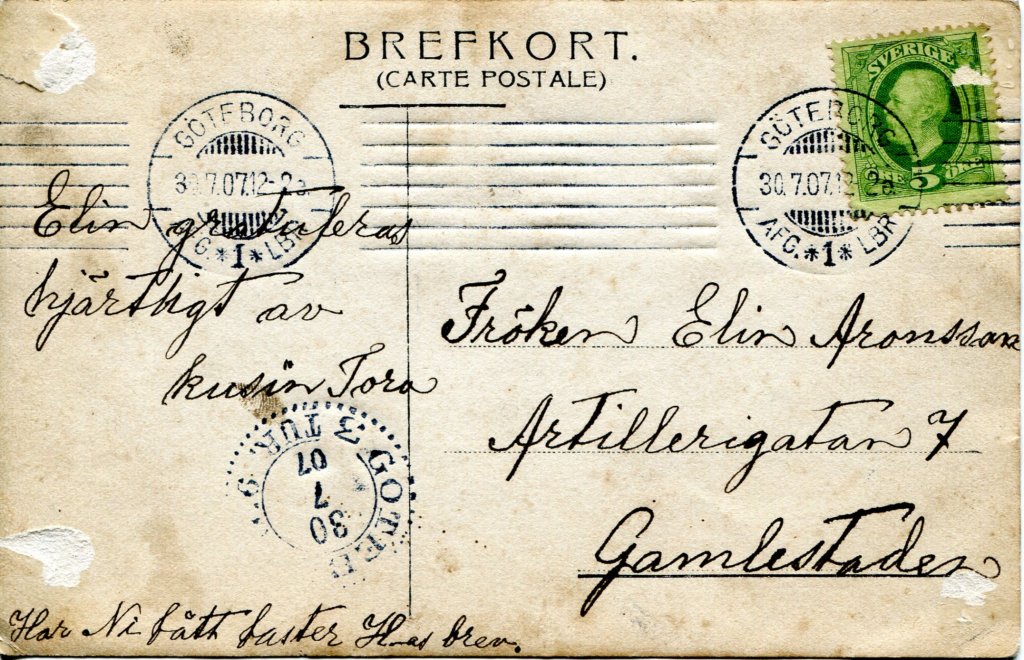 BREFKORT.
(CARTE POSTALE)
SVERIGE
5
GÖTEBORG
30.7.07.12-2a
AFG. *1* LBR
GÖTEBORG
30.7.07.12-2a
AFG. *1* LBR
Elin gratuleras
hjärtligt av
kusin Tora
Fröken Elin Aronsson
Artillerigatan 7
Gamlestaden
GÖTEB
3 TUR
30
7
07
Har Ni fått faster H-as brev.